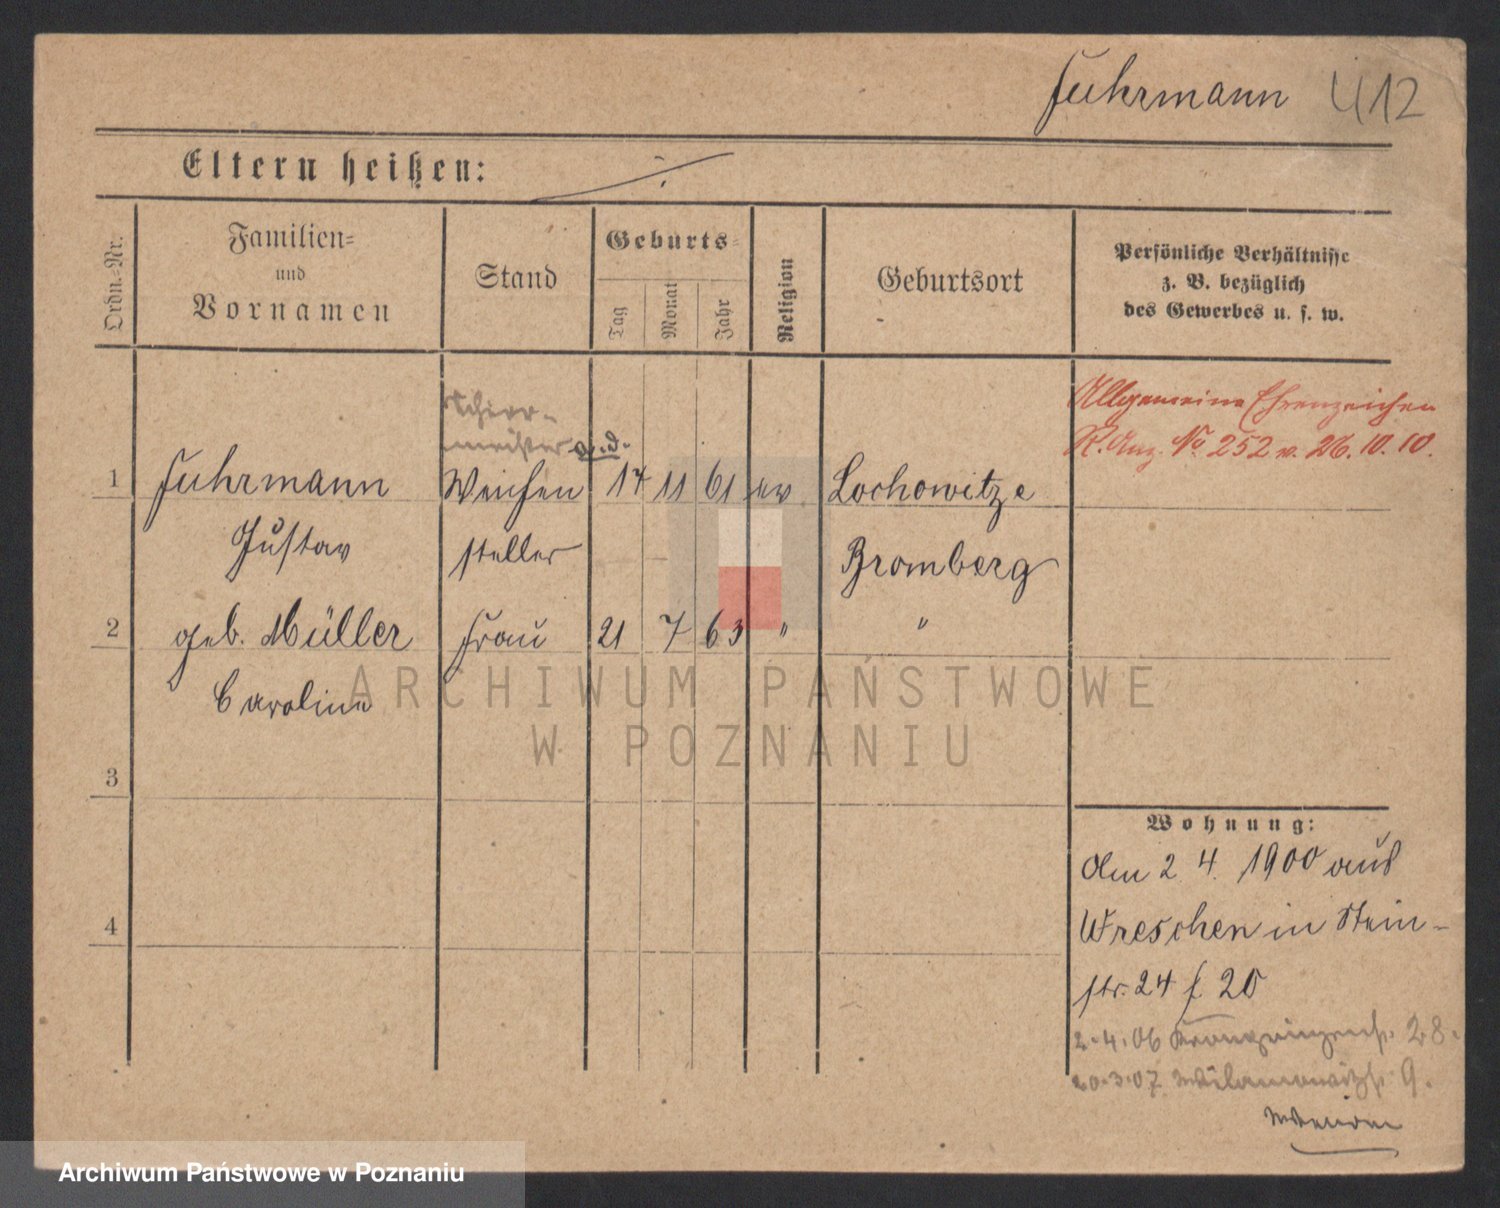 Fuhrmann 412
Eltern heißen: ./.
Ordn.-Nr.
Familien=
und
Vornamen
Stand
Geburts=
Tag
Monat
Jahr
Religion
Geburtsort
Persönliche Verhältnisse
z. B. bezüglich
des Gewerbes u. s. w.
Allgemeine Ehrenzeichen
R. Anz. No 252 v. 26.10.10.
Schirr-
meister a.d.
1 Fuhrmann Weichen 17 11 61 ev Lochowitze
Gustav steller Bromberg
2 geb. Müller Frau 21 7 63 " "
Caroline
3
4
Wohnung:
Am 2 4. 1900 aus
Wreschen in Stein-
str. 24 f 20
2.4.06 Kronprinzenstr. 28.
20.3.07 Wilamowitzstr. 9.
ARCHIWUM PAŃSTWOWE
W POZNANIU
Archiwum Państwowe w Poznaniu